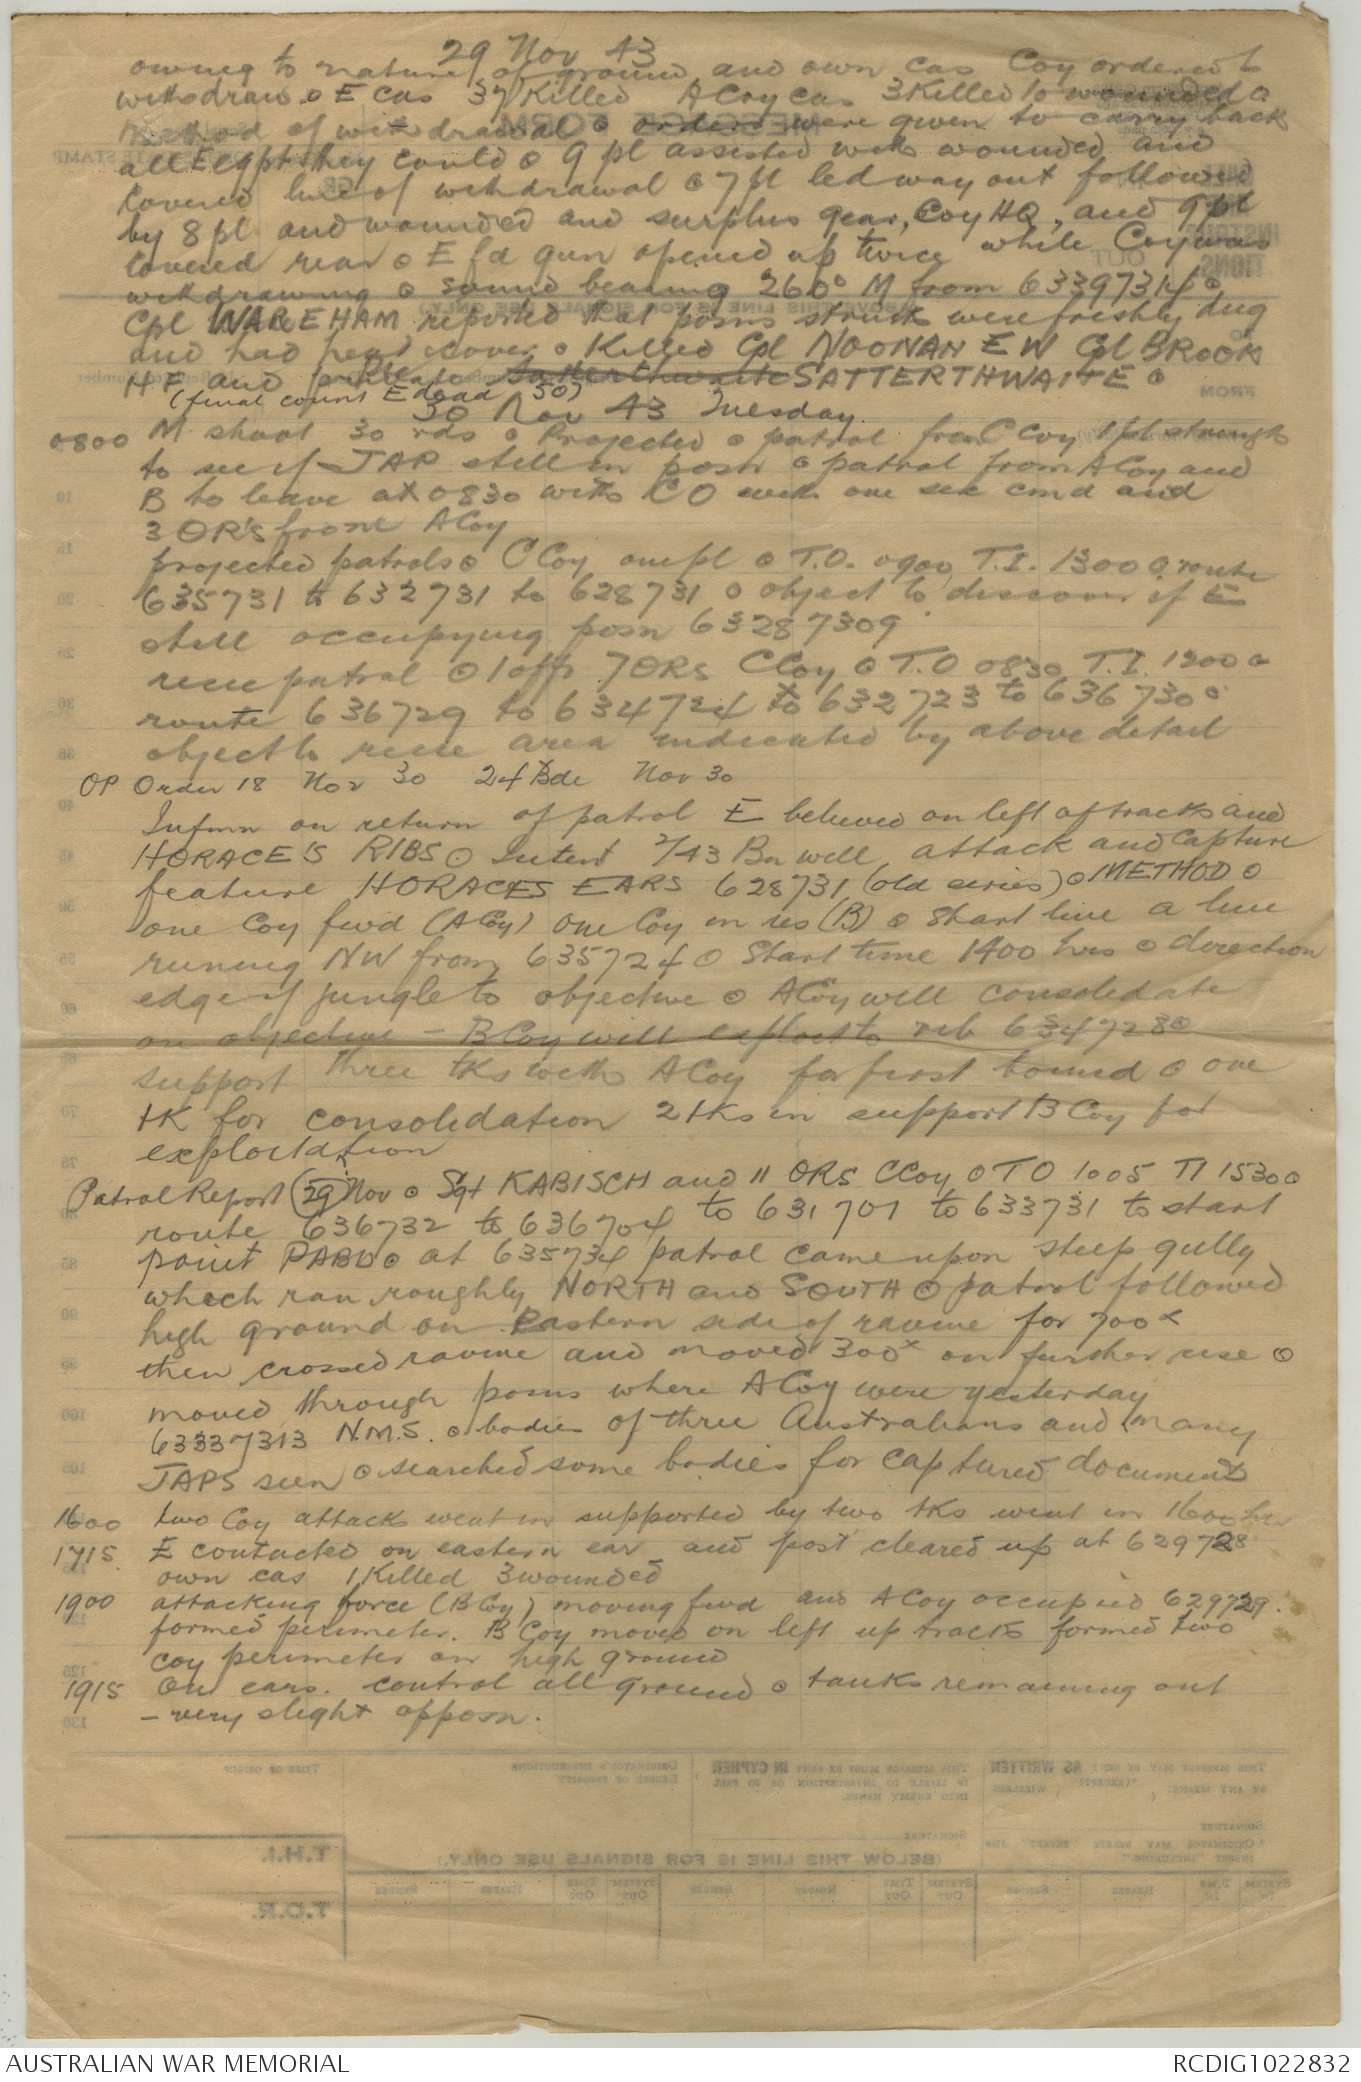 29 Nov 43
owing to nature of ground and own cas Coy ordered to
withdraw ⊙ E cas 37 Killed A Coy cas 3 Killed 10 wounded ⊙
Method of withdrawal ⊙ orders were given to carry back
all E eqpt they could ⊙ 9 pl assisted with wounded and
covered line of withdrawal ⊙ 7 pl led way out followed
by 8 pl and wounded and surplus gear, Coy HQ, and 9 pl
covered rear ⊙ E fd gun opened up twice while Coy was
withdrawing ⊙ sound bearing 260° M from 63397314 ⊙
Cpl WAREHAM reported that posns struck were freshly dug
and had head cover ⊙ Killed Cpl NOONAN E W Cpl BROOK
H F and Pte SATTERTHWAITE ⊙
(final count E dead 50)
30 Nov 43 Tuesday
0800 M shoot 30 rds ⊙ Projected ⊙ patrol from C Coy 1 pl strength
to see if JAP still in posn ⊙ patrol from A Coy and
B to leave at 0830 with CO with one sec cmd and
3 OR's from A Coy
projected patrols ⊙ C Coy one pl ⊙ T.O. 0900 T.I. 1300 ⊙ route
635731 to 632731 to 628731 ⊙ object to discover if E
still occupying posn 63287309
recce patrol ⊙ 1 offr 7 ORs C Coy ⊙ T.O 0830 T.I. 1200 ⊙
route 636729 to 634724 to 632723 to 636730 ⊙
object to recce area indicated by above detail
OP Order 18 Nov 30 24 Bde Nov 30
Infmn on return of patrol E believed on left of tracks and
HORACE'S RIBS ⊙ Intent 2/43 Bn will attack and capture
feature HORACES EARS 628731 (old series) ⊙ METHOD ⊙
one Coy fwd (A Coy) one Coy in res (B) ⊙ Start line a line
running NW from 635724 ⊙ Start time 1400 hrs ⊙ direction
edge of jungle to objective ⊙ A Coy will consolidate
on objective - B Coy will exploit to rib 634728 ⊙
support three tks with A Coy for first bound ⊙ one
tk for consolidation 2 tks in support B Coy for
exploitation
Patrol Report (29) Nov ⊙ Sgt KABISCH and 11 ORS C Coy ⊙ TO 1005 TI 1530 ⊙
route 636732 to 636704 to 631707 to 633731 to start
point PABU ⊙ at 635734 patrol came upon steep gully
which ran roughly NORTH and SOUTH ⊙ patrol followed
high ground on Eastern side of ravine for 700x
then crossed ravine and moved 300x on further rise ⊙
moved through posns where A Coy were yesterday
63337313 N.M.S. ⊙ bodies of three Australians and many
JAPS seen ⊙ searched some bodies for captured document
1600 two Coy attack went in supported by two tks went in 1600 hrs
1715 E contacted on eastern ear and post cleared up at 629728
own cas 1 Killed 3 wounded
1900 attacking force (B Coy) moving fwd and A Coy occupied 629729.
formed perimeter. B Coy moved on left up tracks formed two
coy perimeter on high ground
1915 On ears. control all ground ⊙ tanks remaining out
- very slight opposn.
MESSAGE FORM
T.H.I.
T.O.R.
(BELOW THIS LINE IS FOR SIGNALS USE ONLY.)
AUSTRALIAN WAR MEMORIAL RCDIG1022832